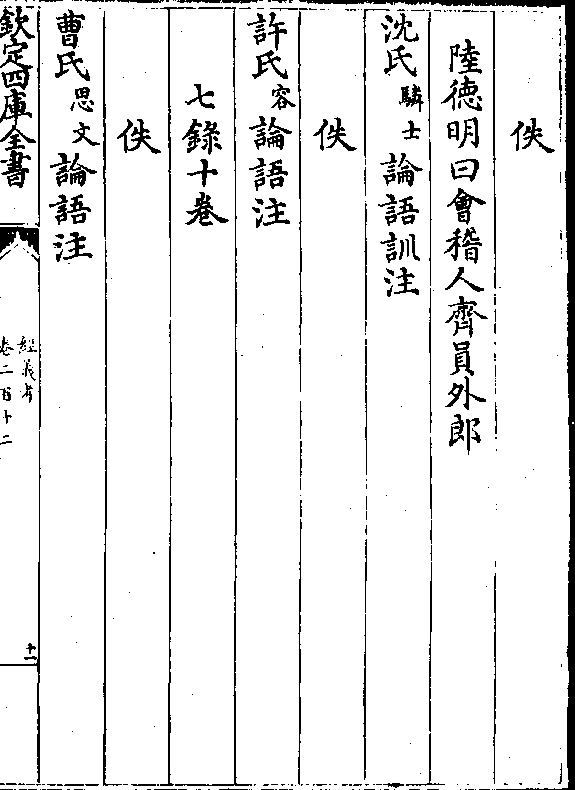 佚
陸德明曰會稽人齊員外郎
沈氏驎士論語訓注
佚
許氏容論語注
七錄十卷
佚
曹氏思文論語注
欽定四庫全書
經義考
卷二百十二
十一